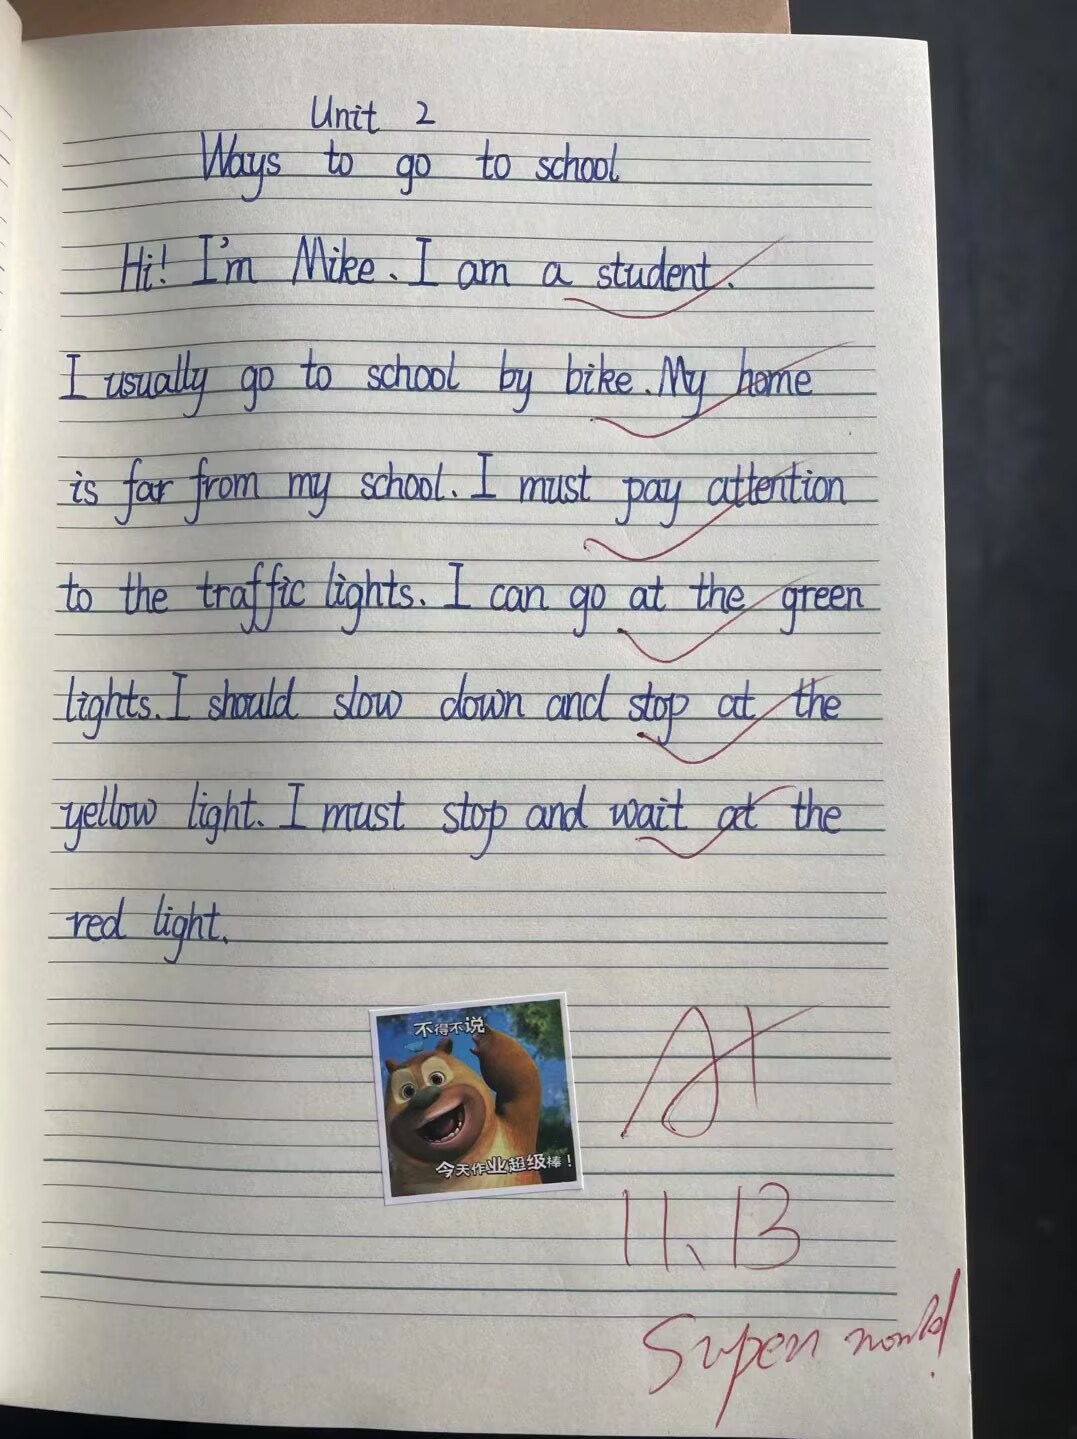 Unit 2
Ways to go to school
Hi! I'm Mike. I am a student.
I usually go to school by bike. My home
is far from my school. I must pay attention
to the traffic lights. I can go at the green
lights. I should slow down and stop at the
yellow light. I must stop and wait at the
red light.
不得不说
今天作业超级棒！
A+
11、13
Super